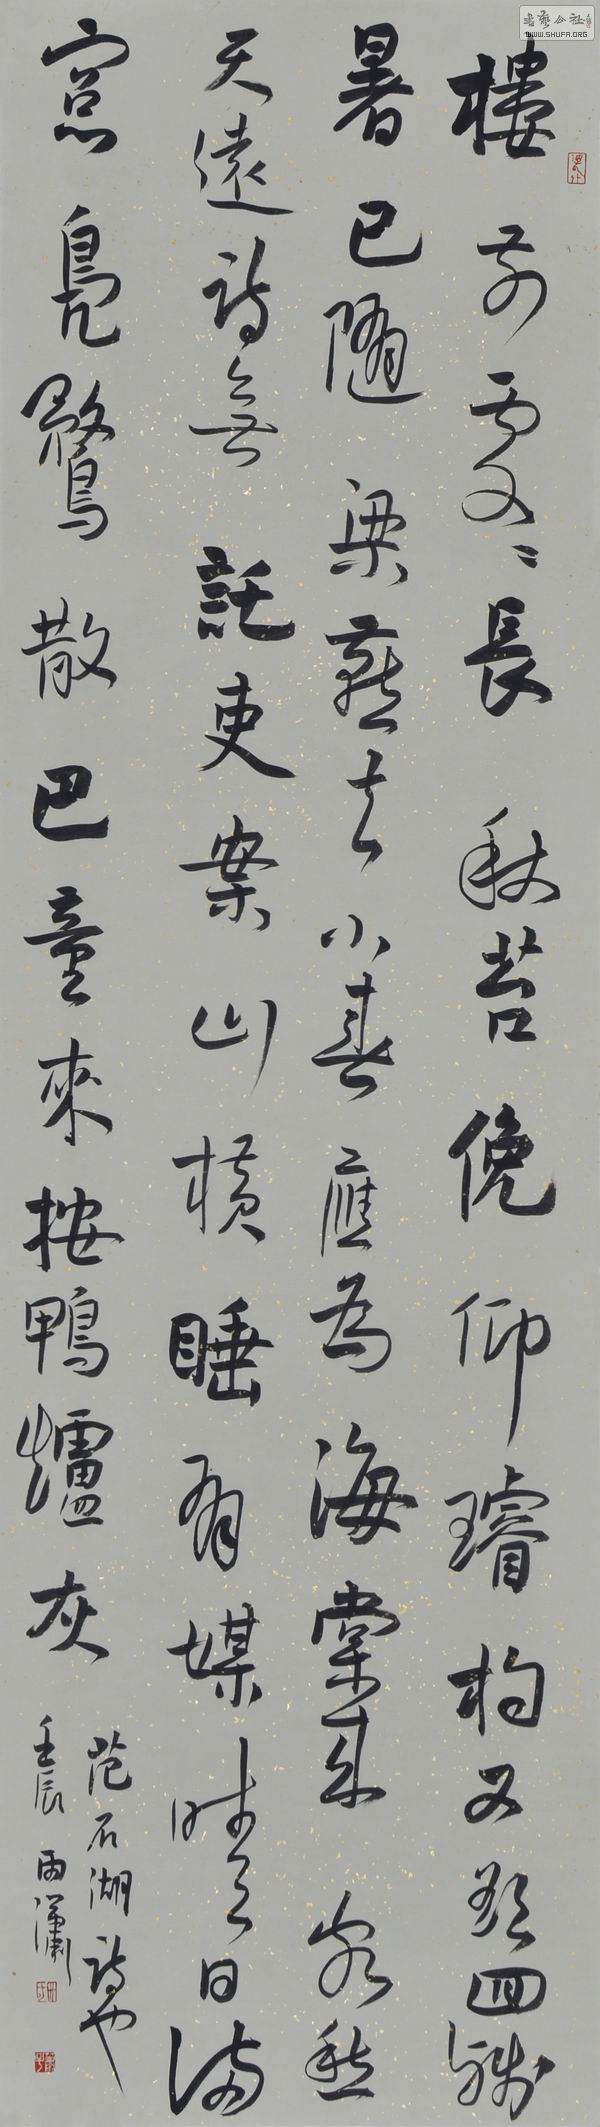 書藝公社
WWW.SHUFA.ORG
樓前處〻長秋苔俛仰璿杓又欲囬殘
暑已隨梁燕去小春應為海棠來客愁
天遠詩無託吏案山橫睡有媒晴日滿
窓鳧鶩散巴童來按鴨爐灰
范石湖詩也
壬辰雨瀟